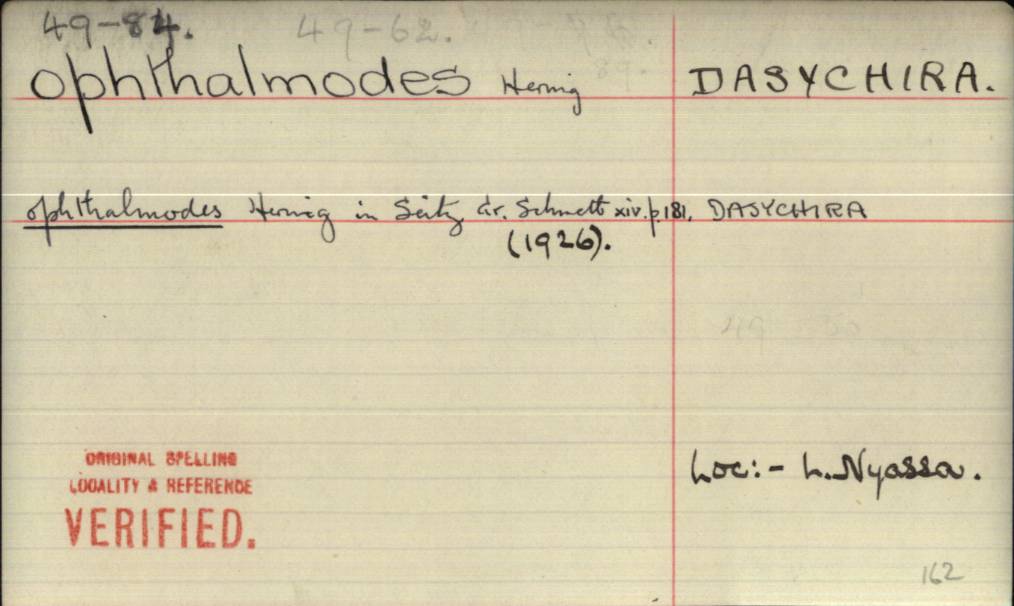 49-84. 49-62.
ophthalmodes Hering DASYCHIRA.
ophthalmodes Hering in Seitz Gr. Schmett xiv. p 181. DASYCHIRA
(1926).
49
ORIGINAL SPELLING
LOCALITY & REFERENCE
VERIFIED.
Loc:- L. Nyassa.
162